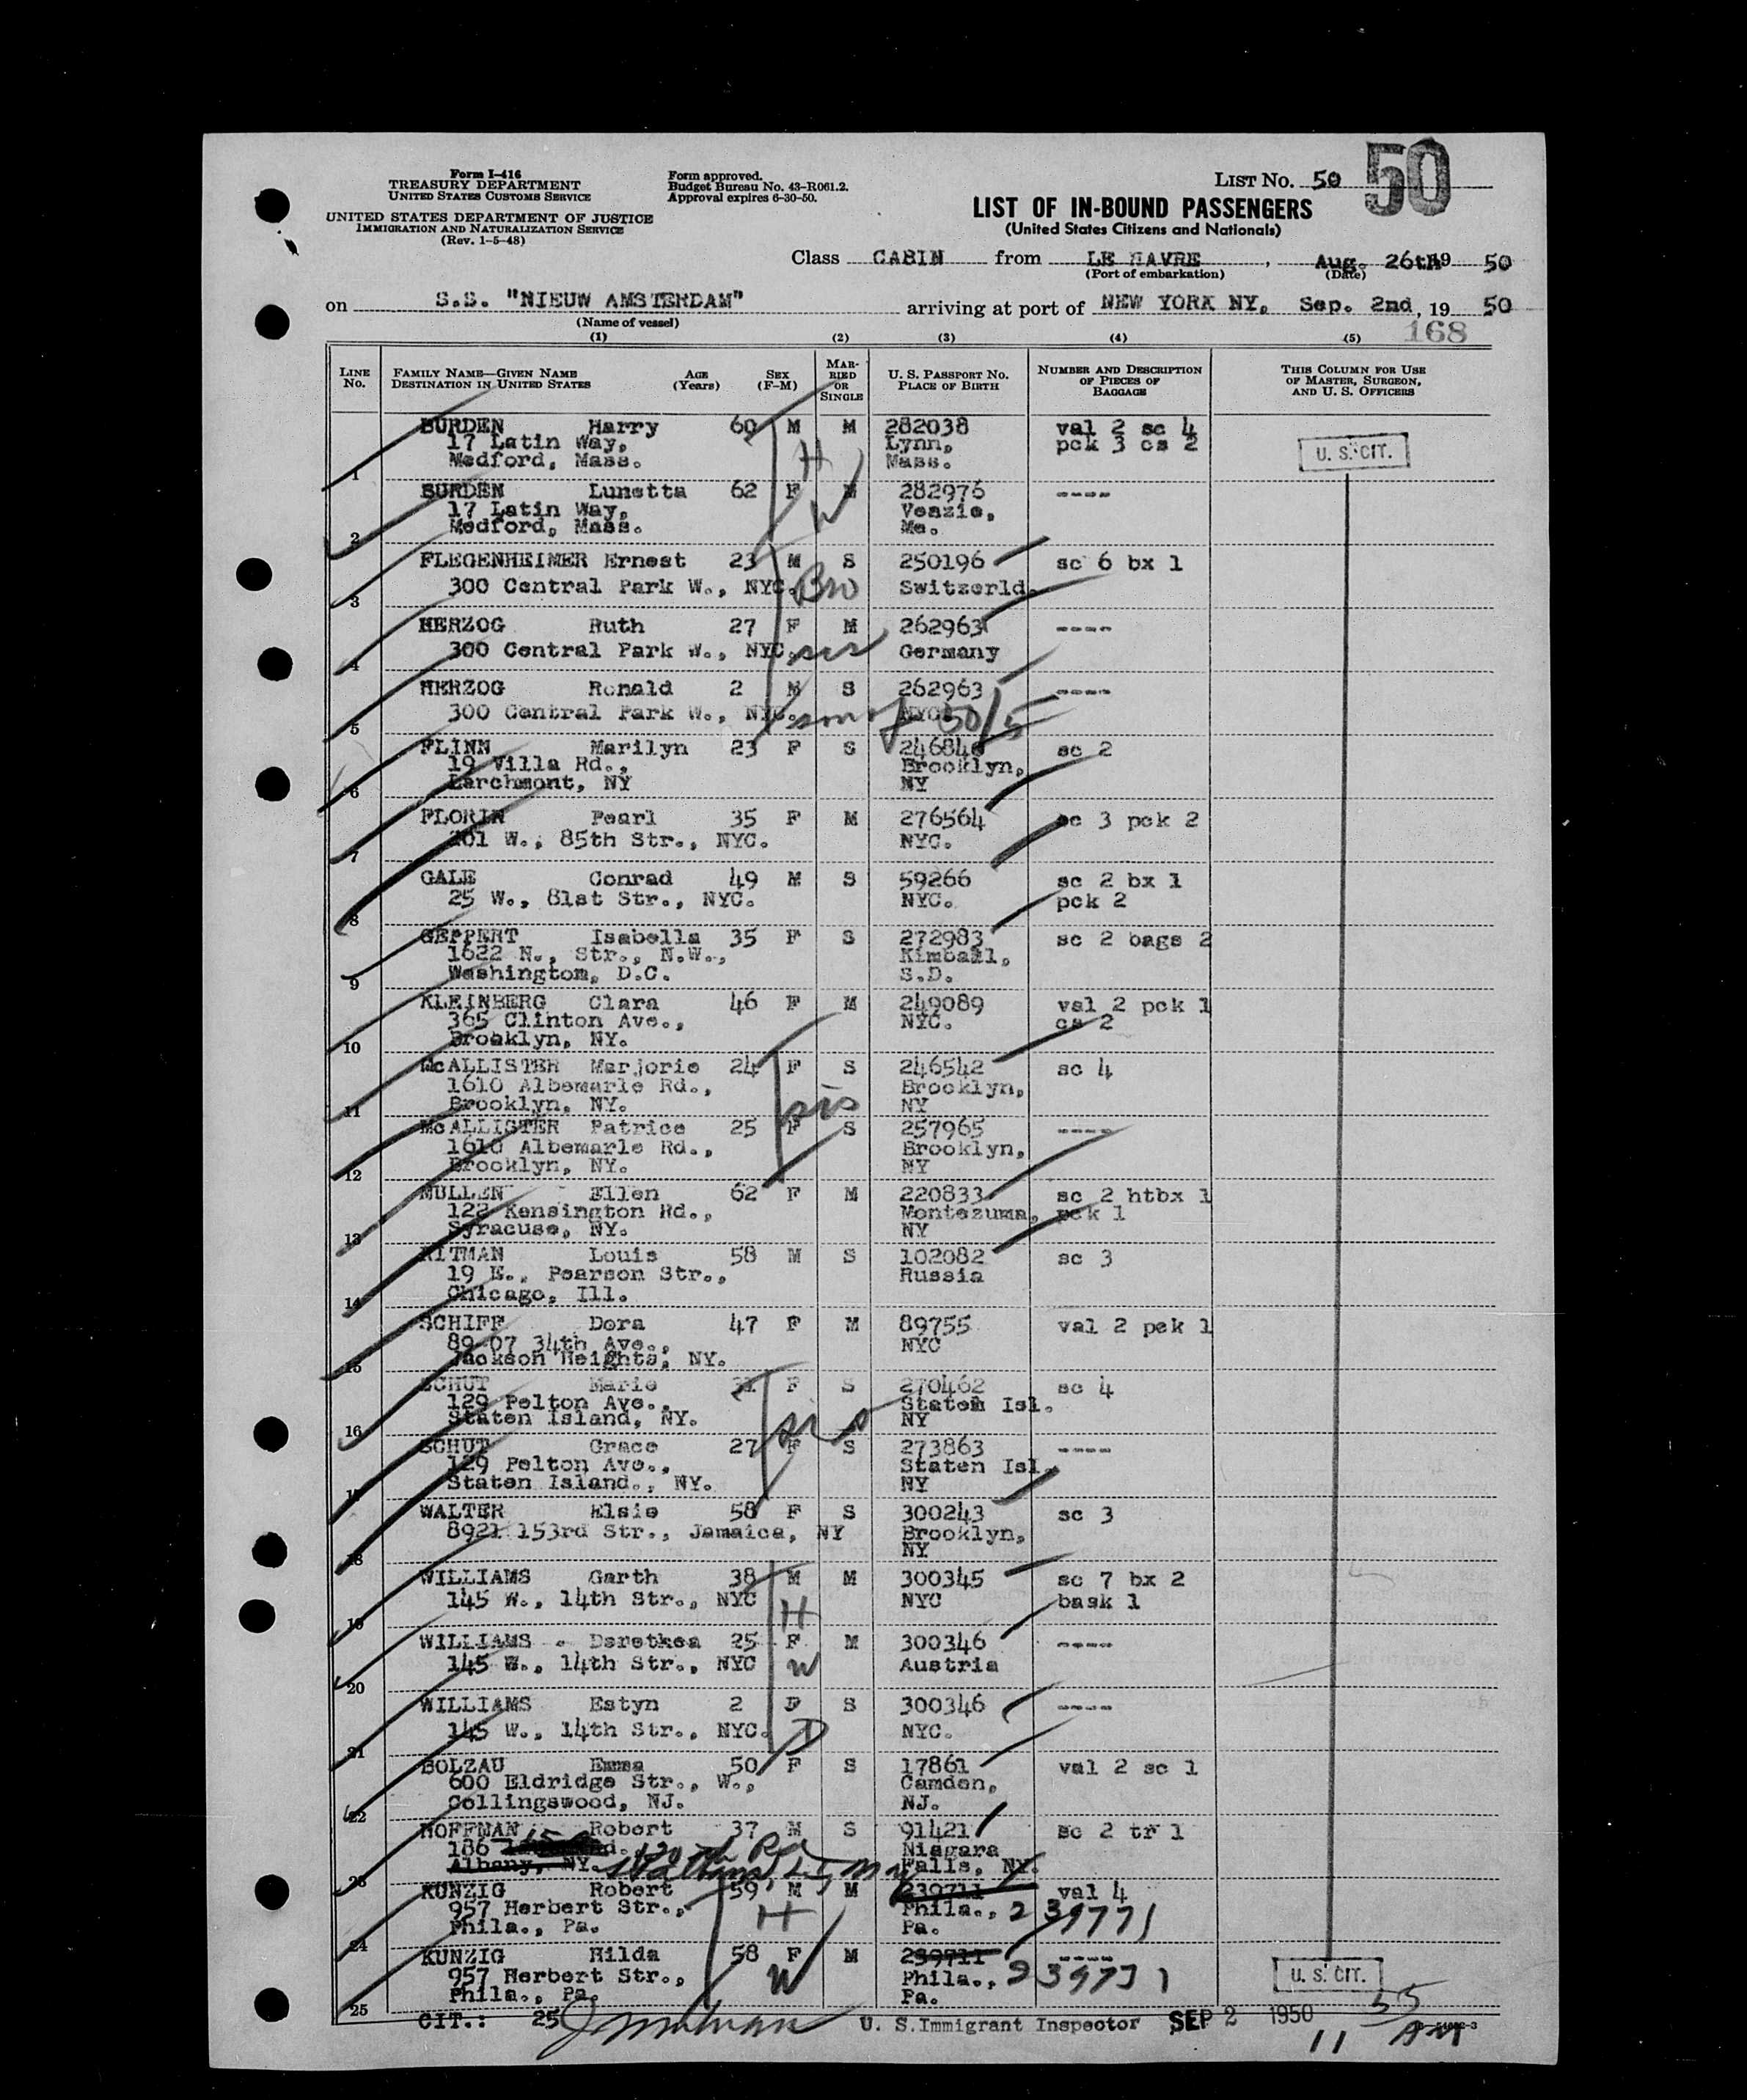 Form I-416
TREASURY DEPARTMENT
UNITED STATES CUSTOMS SERVICE
UNITED STATES DEPARTMENT OF JUSTICE
IMMIGRATION AND NATURALIZATION SERVICE
(Rev. 1-5-48)
Form approved.
Budget Bureau No. 43-R061.2.
Approval expires 6-30-50.
LIST NO. 50 50
LIST OF IN-BOUND PASSENGERS
(United States Citizens and Nationals)
Class CABIN from LE HAVRE, Aug. 26th 19 50
(Port of embarkation) (Date)
on S.S. "NIEUW AMSTERDAM" arriving at port of NEW YORK NY, Sep. 2nd, 19 50
(Name of vessel)
168
(1) (2) (3) (4) (5)
LINE NO. FAMILY NAME—GIVEN NAME DESTINATION IN UNITED STATES AGE (Years) SEX (F-M) MARRIED OR SINGLE U. S. PASSPORT NO. PLACE OF BIRTH NUMBER AND DESCRIPTION OF PIECES OF BAGGAGE THIS COLUMN FOR USE OF MASTER, SURGEON, AND U. S. OFFICERS
BURDEN Harry 60 M M 282038 val 2 sc 4
17 Latin Way, Lynn, pck 3 cs 2
Medford, Mass. H Mass. U. S. CIT.
1
BURDEN Lunetta 62 F M 282976 ----
17 Latin Way, W Veazie,
Medford, Mass. Me.
2
FLEGENHEIMER Ernest 23 M S 250196 sc 6 bx 1
300 Central Park W., NYC. Bro Switzerld.
3
HERZOG Ruth 27 F M 262963 ----
300 Central Park W., NYC. sis Germany
4
HERZOG Ronald 2 M S 262963 ----
300 Central Park W., NYC. son of 50/5 NYC.
5
FLINN Marilyn 23 F S 246846 sc 2
19 Villa Rd., Brooklyn,
Larchmont, NY NY
6
FLORIN Pearl 35 F M 276564 sc 3 pck 2
201 W., 85th Str., NYC. NYC.
7
GALE Conrad 49 M S 59266 sc 2 bx 1
25 W., 81st Str., NYC. NYC. pck 2
8
GEPPERT Isabella 35 F S 272983 sc 2 bags 2
1622 N., Str., N.W., Kimball,
Washington, D.C. S.D.
9
KLEINBERG Clara 46 F M 249089 val 2 pck 1
365 Clinton Ave., NYC. cs 2
Brooklyn, NY.
10
McALLISTER Marjorie 24 F S 246542 sc 4
1610 Albemarle Rd., Brooklyn,
Brooklyn, NY. sis NY
11
McALLISTER Patrice 25 F S 257965 ----
1610 Albemarle Rd., Brooklyn,
Brooklyn, NY. NY
12
MULLEN Ellen 62 F M 220833 sc 2 htbx 1
122 Kensington Rd., Montezuma, pck 1
Syracuse, NY. NY
13
RITMAN Louis 58 M S 102082 sc 3
19 E., Pearson Str., Russia
Chicago, Ill.
14
SCHIFF Dora 47 F M 89755 val 2 pek 1
89-07 34th Ave., NYC
Jackson Heights, NY.
15
SCHUT Marie 31 F S 270462 sc 4
129 Pelton Ave., Staten Isl.
Staten Island, NY. sis NY
16
SCHUT Grace 27 F S 273863 ----
129 Pelton Ave., Staten Isl.
Staten Island., NY. NY
17
WALTER Elsie 58 F S 300243 sc 3
8921 153rd Str., Jamaica, NY Brooklyn,
NY
18
WILLIAMS Garth 38 M M 300345 sc 7 bx 2
145 W., 14th Str., NYC H NYC bask 1
19
WILLIAMS - Dorothea 25 F M 300346 ----
145 W., 14th Str., NYC W Austria
20
WILLIAMS Estyn 2 F S 300346 ----
145 W., 14th Str., NYC. D NYC.
21
BOLZAU Emma 50 F S 17861 val 2 sc 1
600 Eldridge Str., W., Camden,
Collingswood, NJ. NJ.
22
HOFFMAN Robert 37 M S 91421 sc 2 tr 1
186 Niagara
Albany, NY. Falls, NY.
23
KUNZIG Robert 59 M M 239711 val 4
957 Herbert Str., H Phila., 239771
Phila., Pa. Pa.
24
KUNZIG Hilda 58 F M 239711 ----
957 Herbert Str., W Phila., 239771 U. S. CIT.
Phila., Pa. Pa.
25
CIT.: 25 U. S. Immigrant Inspector SEP 2 1950 11 55 AM